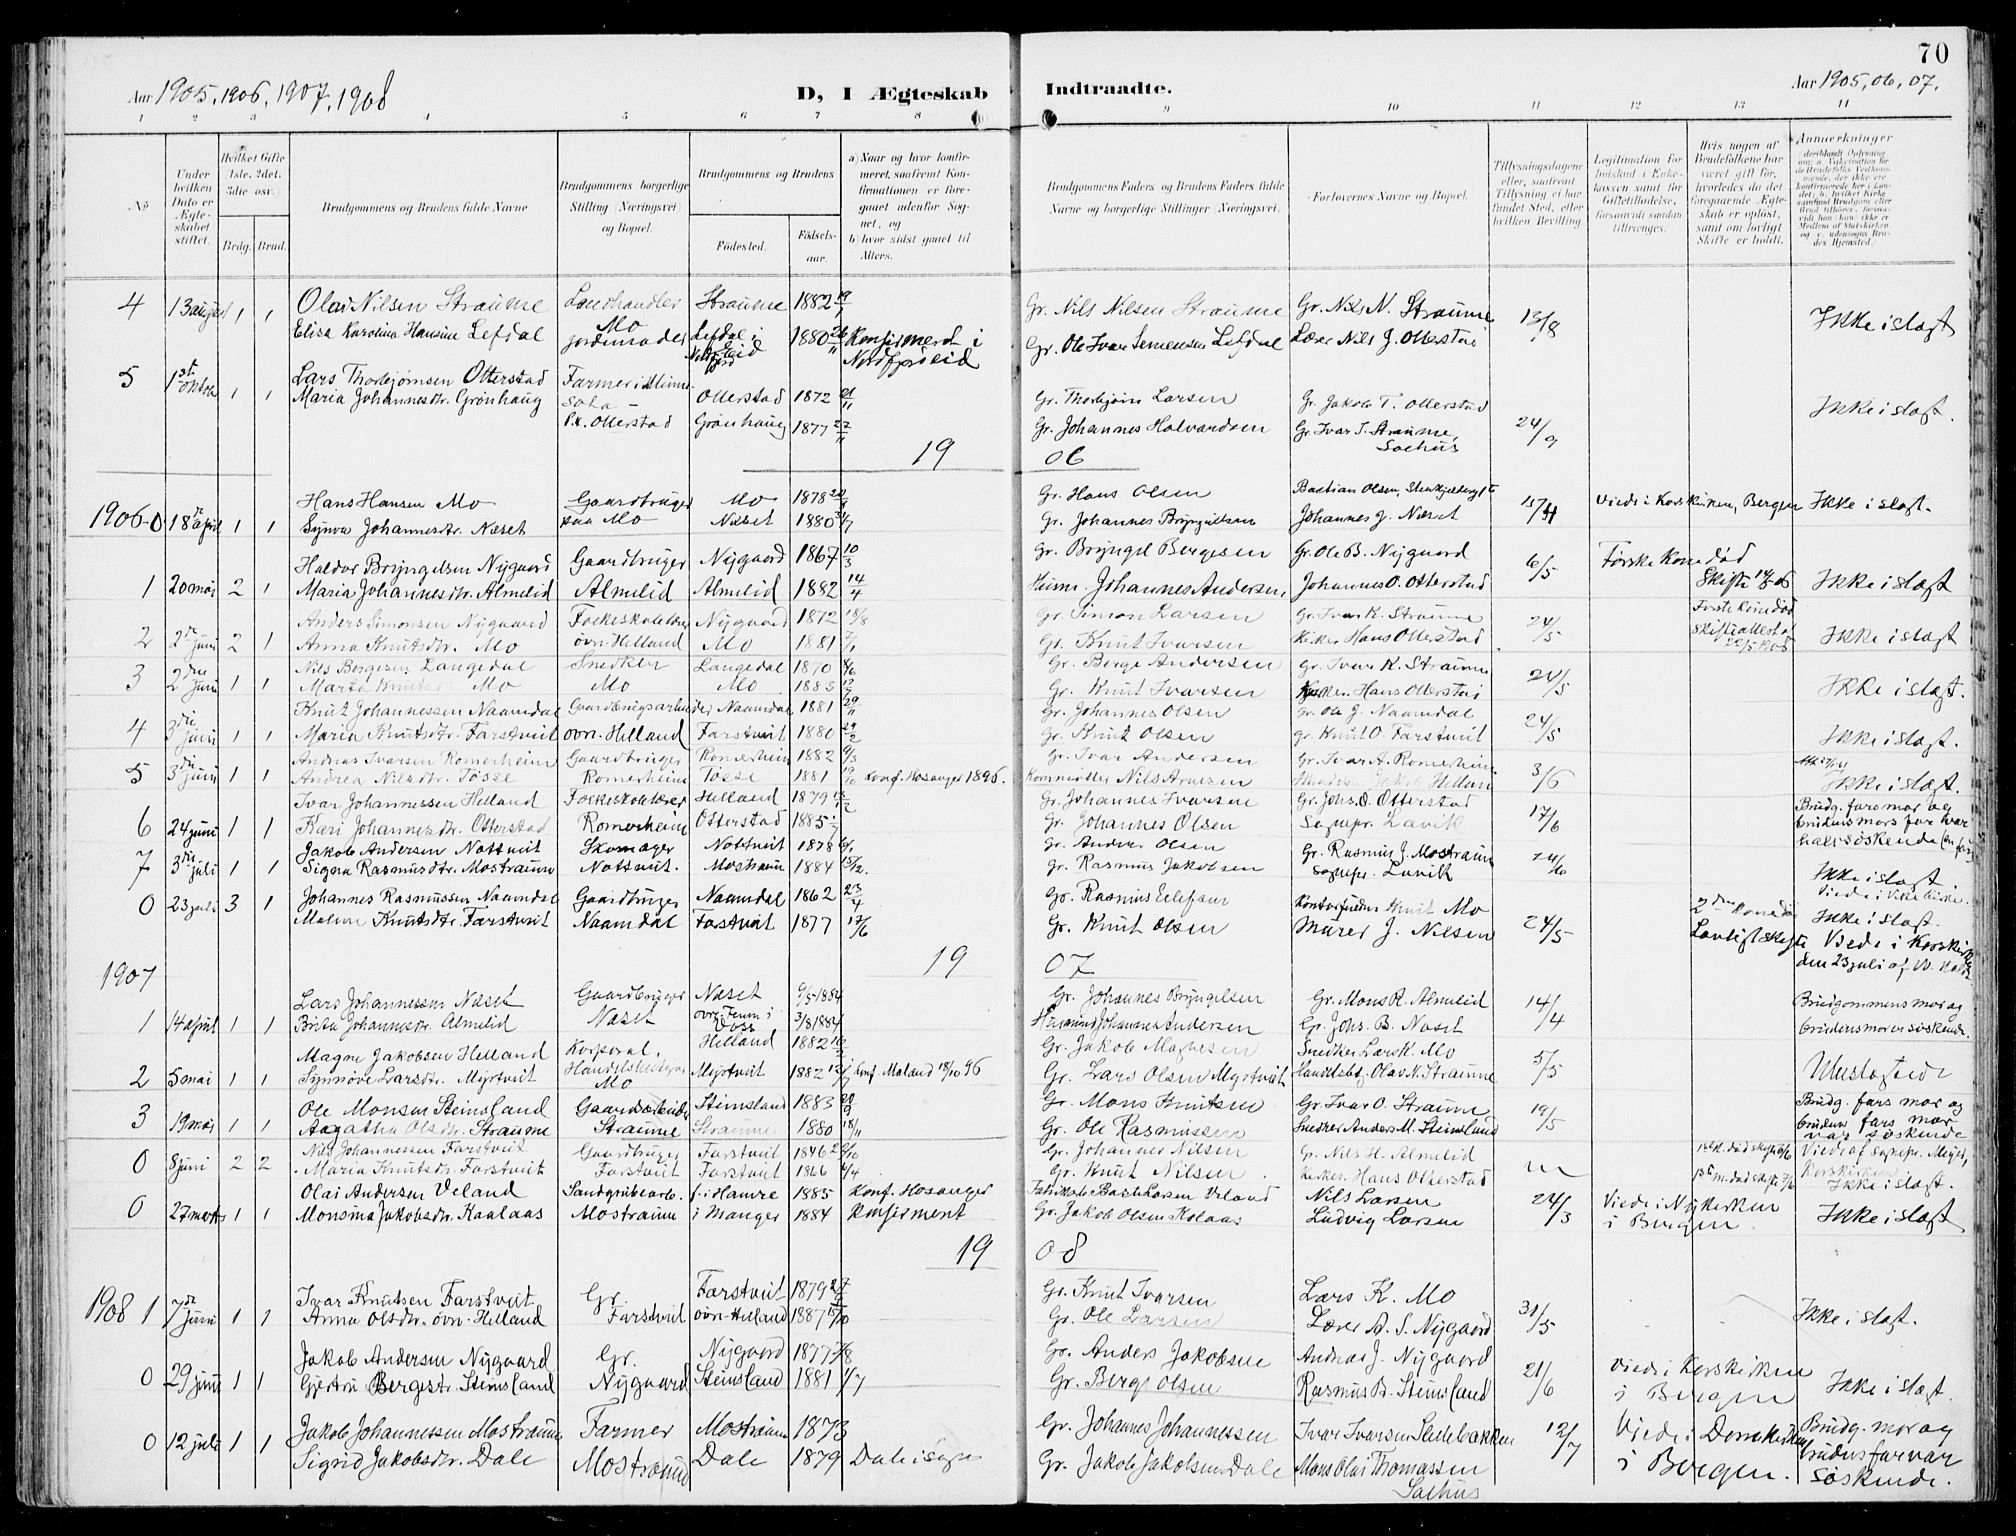 70
Aar 1905, 1906, 1907, 1908
D, I Ægteskab Indtraadte.
Aar 1905, 06, 07.
1 2 3 4 5 6 7 8 9 10 11 12 13 14
No
Under hvilken Dato er Ægteskabet stiftet.
Hvilket Gifte (1ste, 2det, 3die osv.
Brdg. Brud.
Brudgommens og Brudens fulde Navne
Brudgommens borgerlige Stilling (Næringsvei) og Bopæl.
Brudgommens og Brudens
Fødested. Fødselsaar.
a) Naar og hvor konfirmeret, saafremt Konfirmationen er foregaaet udenfor Sognet, og
b) hvor sidst gaaet til Alters.
Brudgommens Faders og Brudens Faders fulde Navne og borgerlige Stillinger (Næringsvei).
Forlovernes Navne og Bopæl.
Tillysningsdagene eller, saafremt Tillysning ei har fundet Sted, efter hvilken Bevilling
Legitimation for Indskud i Enkekassen samt for Giftetilladelse, forsaavidt saadan tiltrænges.
Hvis nogen af Brudefolkene har været gift før, hvorledes da det foregaaende Ægteskab er opløst, samt om lovligt Skifte er holdt.
Anmerkninger
4 13 august 1 1 Olai Nilsen Straume Landhandler Straume 1882 Gr. Nils Nilsen Straume Gr. Nils N. Straume 13/8 Ikke i slagt
Elisa Karolina Hansine Lefdal Mo jordemoder Lefdal i Nordfjord 1880 26/11 Konfirmeret i Nordfjordeid Gr. Ole Ivar Lefdal Lærer Nils J. Otterstad
5 1st oktober 1 1 Lars Thorbjørnsen Otterstad Farmer i Minnesota Otterstad 1872 21/11 Gr. Thorbjørn Larsen Gr. Jakob T. Otterstad 24/9 Ikke i slagt.
Maria Johannesdtr. Grønhaug Otterstad Grønhaug 1877 Gr. Johannes Halvardsen Gr. Ivar I. Straume, Sælhus
19 06
1906 0 18de april 1 1 Hans Hansen Mo Gaardbruger Mo 1878 Gr. Hans Olsen Bastian Olsen, 15/4 Viede i Korskirken, Bergen Ikke i slagt.
Synva Johannesdtr. Næset paa Mo Næset 1880 Gr. Johannes Bryngelsen Johannes J. Næset
1 20 mai 2 1 Haldor Bryngelsen Nygaard Gaardbruger Nygaard 1867 10/3 Gr. Bryngel Bergesen Gr. Ole B. Nygaard 6/5 Første kone død
Maria Johannesdtr. Almelid Almelid Almelid 1882 14/4 Johannes Andersen, Johannes O. Otterstad Skifte Ikke i slagt
2 2de juni 2 1 Anders Simonsen Nygaard Folkeskolelærer Nygaard 1872 18/8 Gr. Simon Larsen Gr. Ivar K. Straume 24/5 Første kone død
Anna Knutsdtr. Mo øvn. Helland Mo 1881 7/1 Gr. Knut Ivarsen Hans Otterstad Ikke i slagt
3 2den juni 1 1 Nils Bergesen Langedal Snedker Langedal 1870 Gr. Berge Andersen Gr. Ivar K. Straume 24/5
Marta Mo Mo Mo 1883 Gr. Knut Ivarsen Hans Otterstad Ikke i slagt.
4 3die juni 1 1 Knut Johannessen Naamdal Naamdal 1881 29/11 Gr. Johannes Olsen Gr. Ole J. Naamdal 24/5
Maria Knutsdtr. Farstveit øvn. Helland Farstveit 1880 Gr. Knut Olsen gr. Knut O. Farstveit Ikke i slagt.
5 3die juni 1 1 Andreas Ivarsen Romerheim Gaardbruger Romerheim 1882 9/3 Gr. Ivar Andersen Gr. Ivar A. Romerheim 3/6
Andrea Nilsdtr. Tösse Romerheim Tösse 1881 konf. Hosanger 1896. Kornmøller Nils Arnesen Jakob Helland Ikke i slagt.
6 24 juni 1 1 Ivar Johannessen Helland Folkeskolelærer Helland 1879 Gr. Johannes Ivarsen Gr. Johs. O. Otterstad 17/6 Brudg. fars mor og
Kari Johannesdtr. Otterstad Romerheim Otterstad 1885 Gr. Johannes Olsen Sognepr. Lavik brudens mors far var halvsøskende
7 3die juli 1 1 Jakob Andersen Nottveit Skomager Nottveit 1878 Gr. Anders Olsen Gr. Rasmus J. Mostraum 24/6
Signa Rasmusdtr. Mostraum Nottveit. Mostraum 1884 15/12. Gr. Rasmus Jakobsen Sognepr. Lavik Ikke i slagt.
0 23 juli 3 1 Johannes Rasmussen Naamdal Gaardbruger Naamdal 1862 23/4 Gr. Rasmus Knut Mo 24/5 2den kone død Ikke i slagt.
Malene Knutsdtr. Farstveit Naamdal Farstveit 1877 12/6 Gr. Knut Olsen Murer J. Nilsen Lovligt skifte Viede i Korskirken den 23 juli af
1907 19 07
1 14 april 1 1 Lars Johannessen Næset Gaardbruger Næset 1884 Gr. Johannes Bryngelsen Gr. Mons R. Almelid 14/4 Brudgommens mor og
Brita Johannesdtr. Almelid Næset Voss 3/8 1884 Johannes Andersen Gr. Johs. B. Næset brudens mor er søskende.
2 5 mai 1 1 Magne Jakobsen Helland Korporal, Helland 1882 Gr. Jakob Magnesen Snedker Lars K. Mo 5/5
Synnøve Larsdtr. Myrtveit Mo Myrtveit 1882 Konf. Maland 18/10 96 Gr. Lars Olsen Myrtveit Handelsbetj. Olav N. Straume Ubeslægtede
3 19 mai 1 1 Ole Monsen Steinsland Gaardarbeider Steinsland 1883 Gr. Mons Knutsen Gr. Ivar O. Straume 19/5 Brudg. fars mor og
Aagatha Olsdtr. Straume Straume Straume 1880 18/11 Gr. Ole Rasmussen Snedker Anders M. Steinsland brudens fars mor var søskende
0 8 juni 2 2 Nils Johannessen Farstveit Gaardbruger Farstveit 1846 Gr. Johannes Nilsen Gr. Nils H. Almelid Viede af sognepr. Meyer,
Maria Knutsdtr. Farstveit Farstveit Farstveit 1866 4/4 Gr. Knut Nilsen Hans Otterstad Korskirken Ikke i slagt.
0 27 marts 1 1 Olai Andersen Veland Sandgrubearb. f. i Hamre 1885 Konf. Hosanger Larsen Veland Nils Larsen 24/3 Viede i Nykirken
Monsina Jakobsdtr. Kaalaas Mostraum i Manger 1884 Konfirmert Gr. Jakob Olsen Kolaas Ludvig Larsen i Bergen Ikke i slagt
19 08
1908 1 7de juni 1 1 Ivar Knutsen Farstveit Gr. Farstveit 1879 Gr. Knut Ivarsen Lars K. Mo 31/5
Anna Olsdtr. øvn. Helland Farstveit øvn. Helland 1887 15/10 Gr. Ole Larsen Lærer A. S. Nygaard Ikke i slagt.
0 29 juni 1 1 Jakob Andersen Nygaard Gr. Nygaard 1877 Gr. Anders Jakobsen Andreas J. Nygaard 21/6 Viede i Korskirken
Gjertru Bergesdtr. Steinsland Nygaard Steinsland 1881 1/7 Gr. Berge Olsen Rasmus B. Steinsland i Bergen Ikke i slagt.
0 12 juli 1 1 Jakob Johannessen Mostraum Farmer Mostraum 1873 Gr. Johannes Johannessen Ivar Ivarsen Slettebakken 12/7 Viede i Domkirken Brudg. mor og
Sigrid Jakobsdtr. Dale Mostraum Dale 1879 Dale i Sogn Gr. Jakob Jakobsen Dale Mons Olai Thomassen Sælhus i Bergen. brudens far var søskende.